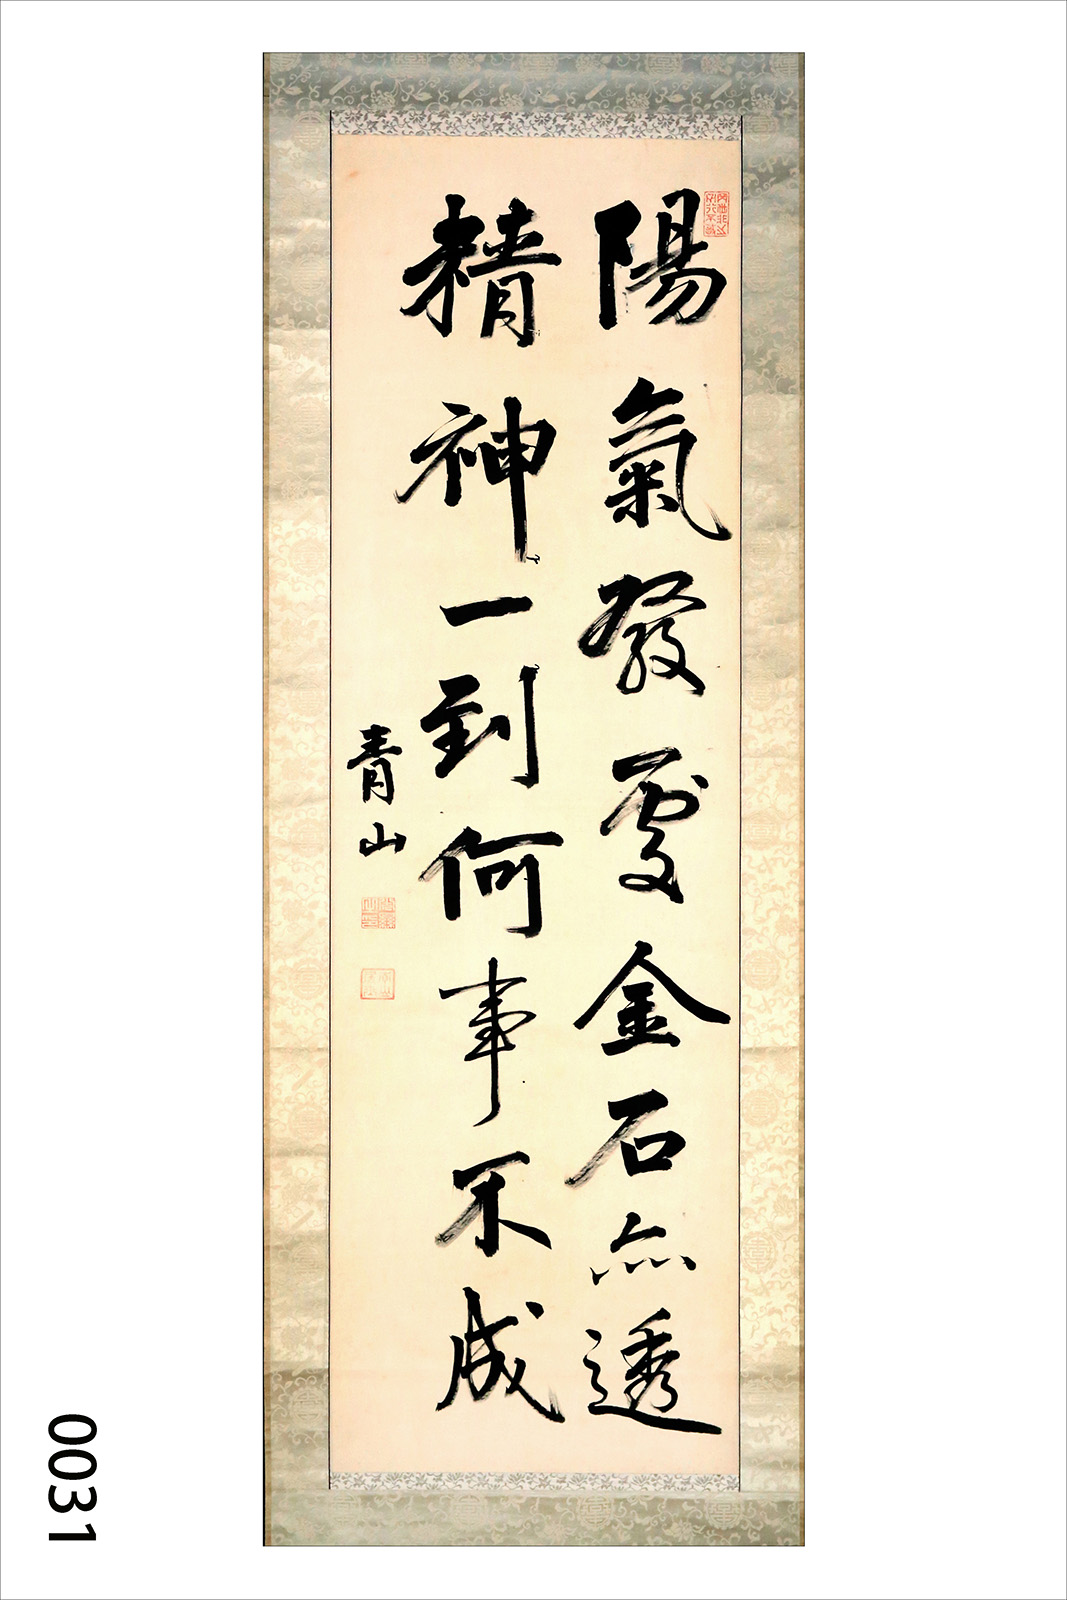 陽氣發處金石亦透
精神一到何事不成
青山
0031